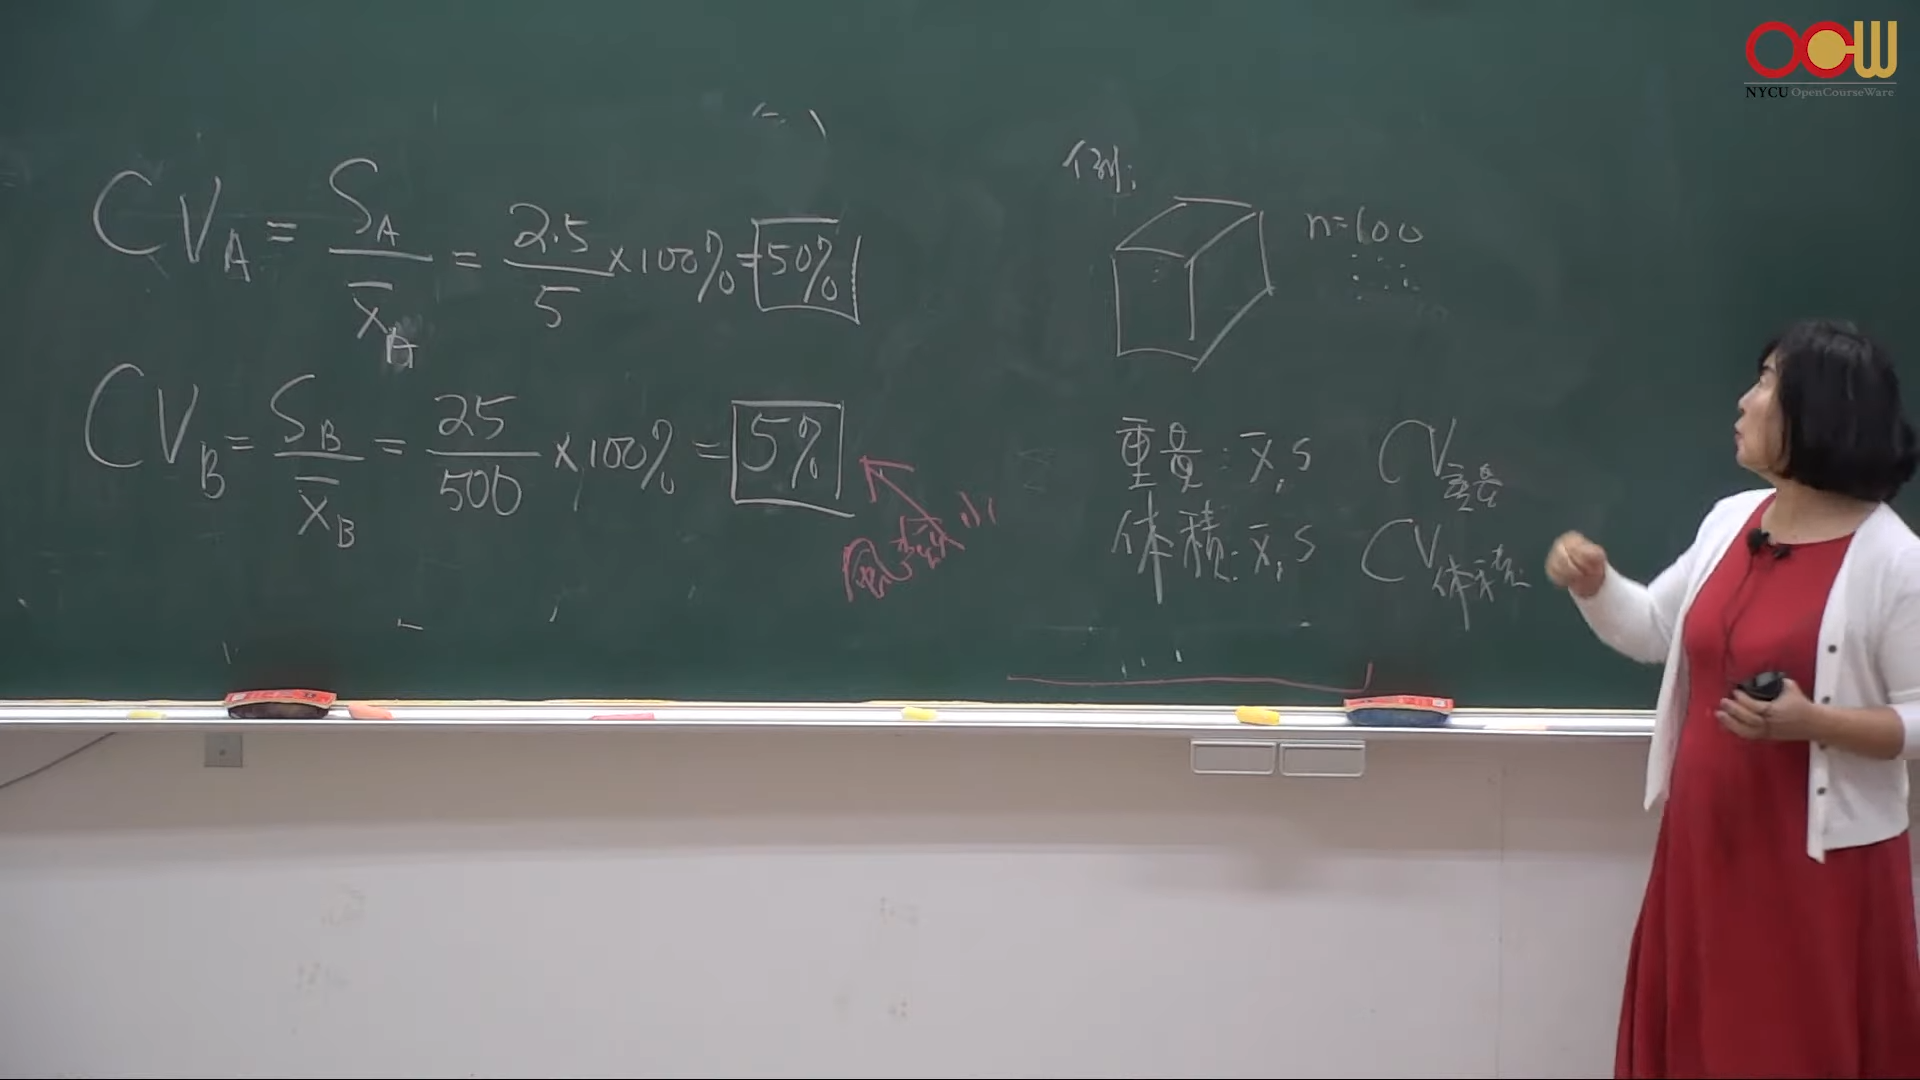 OCW
NYCU OpenCourseWare
CV_A = S_A / x̄_A = 2.5 / 5 × 100% = 50%
CV_B = S_B / x̄_B = 25 / 500 × 100% = 5%
例:
n=100
重量: x̄, s CV重量
体積: x̄, s CV体積